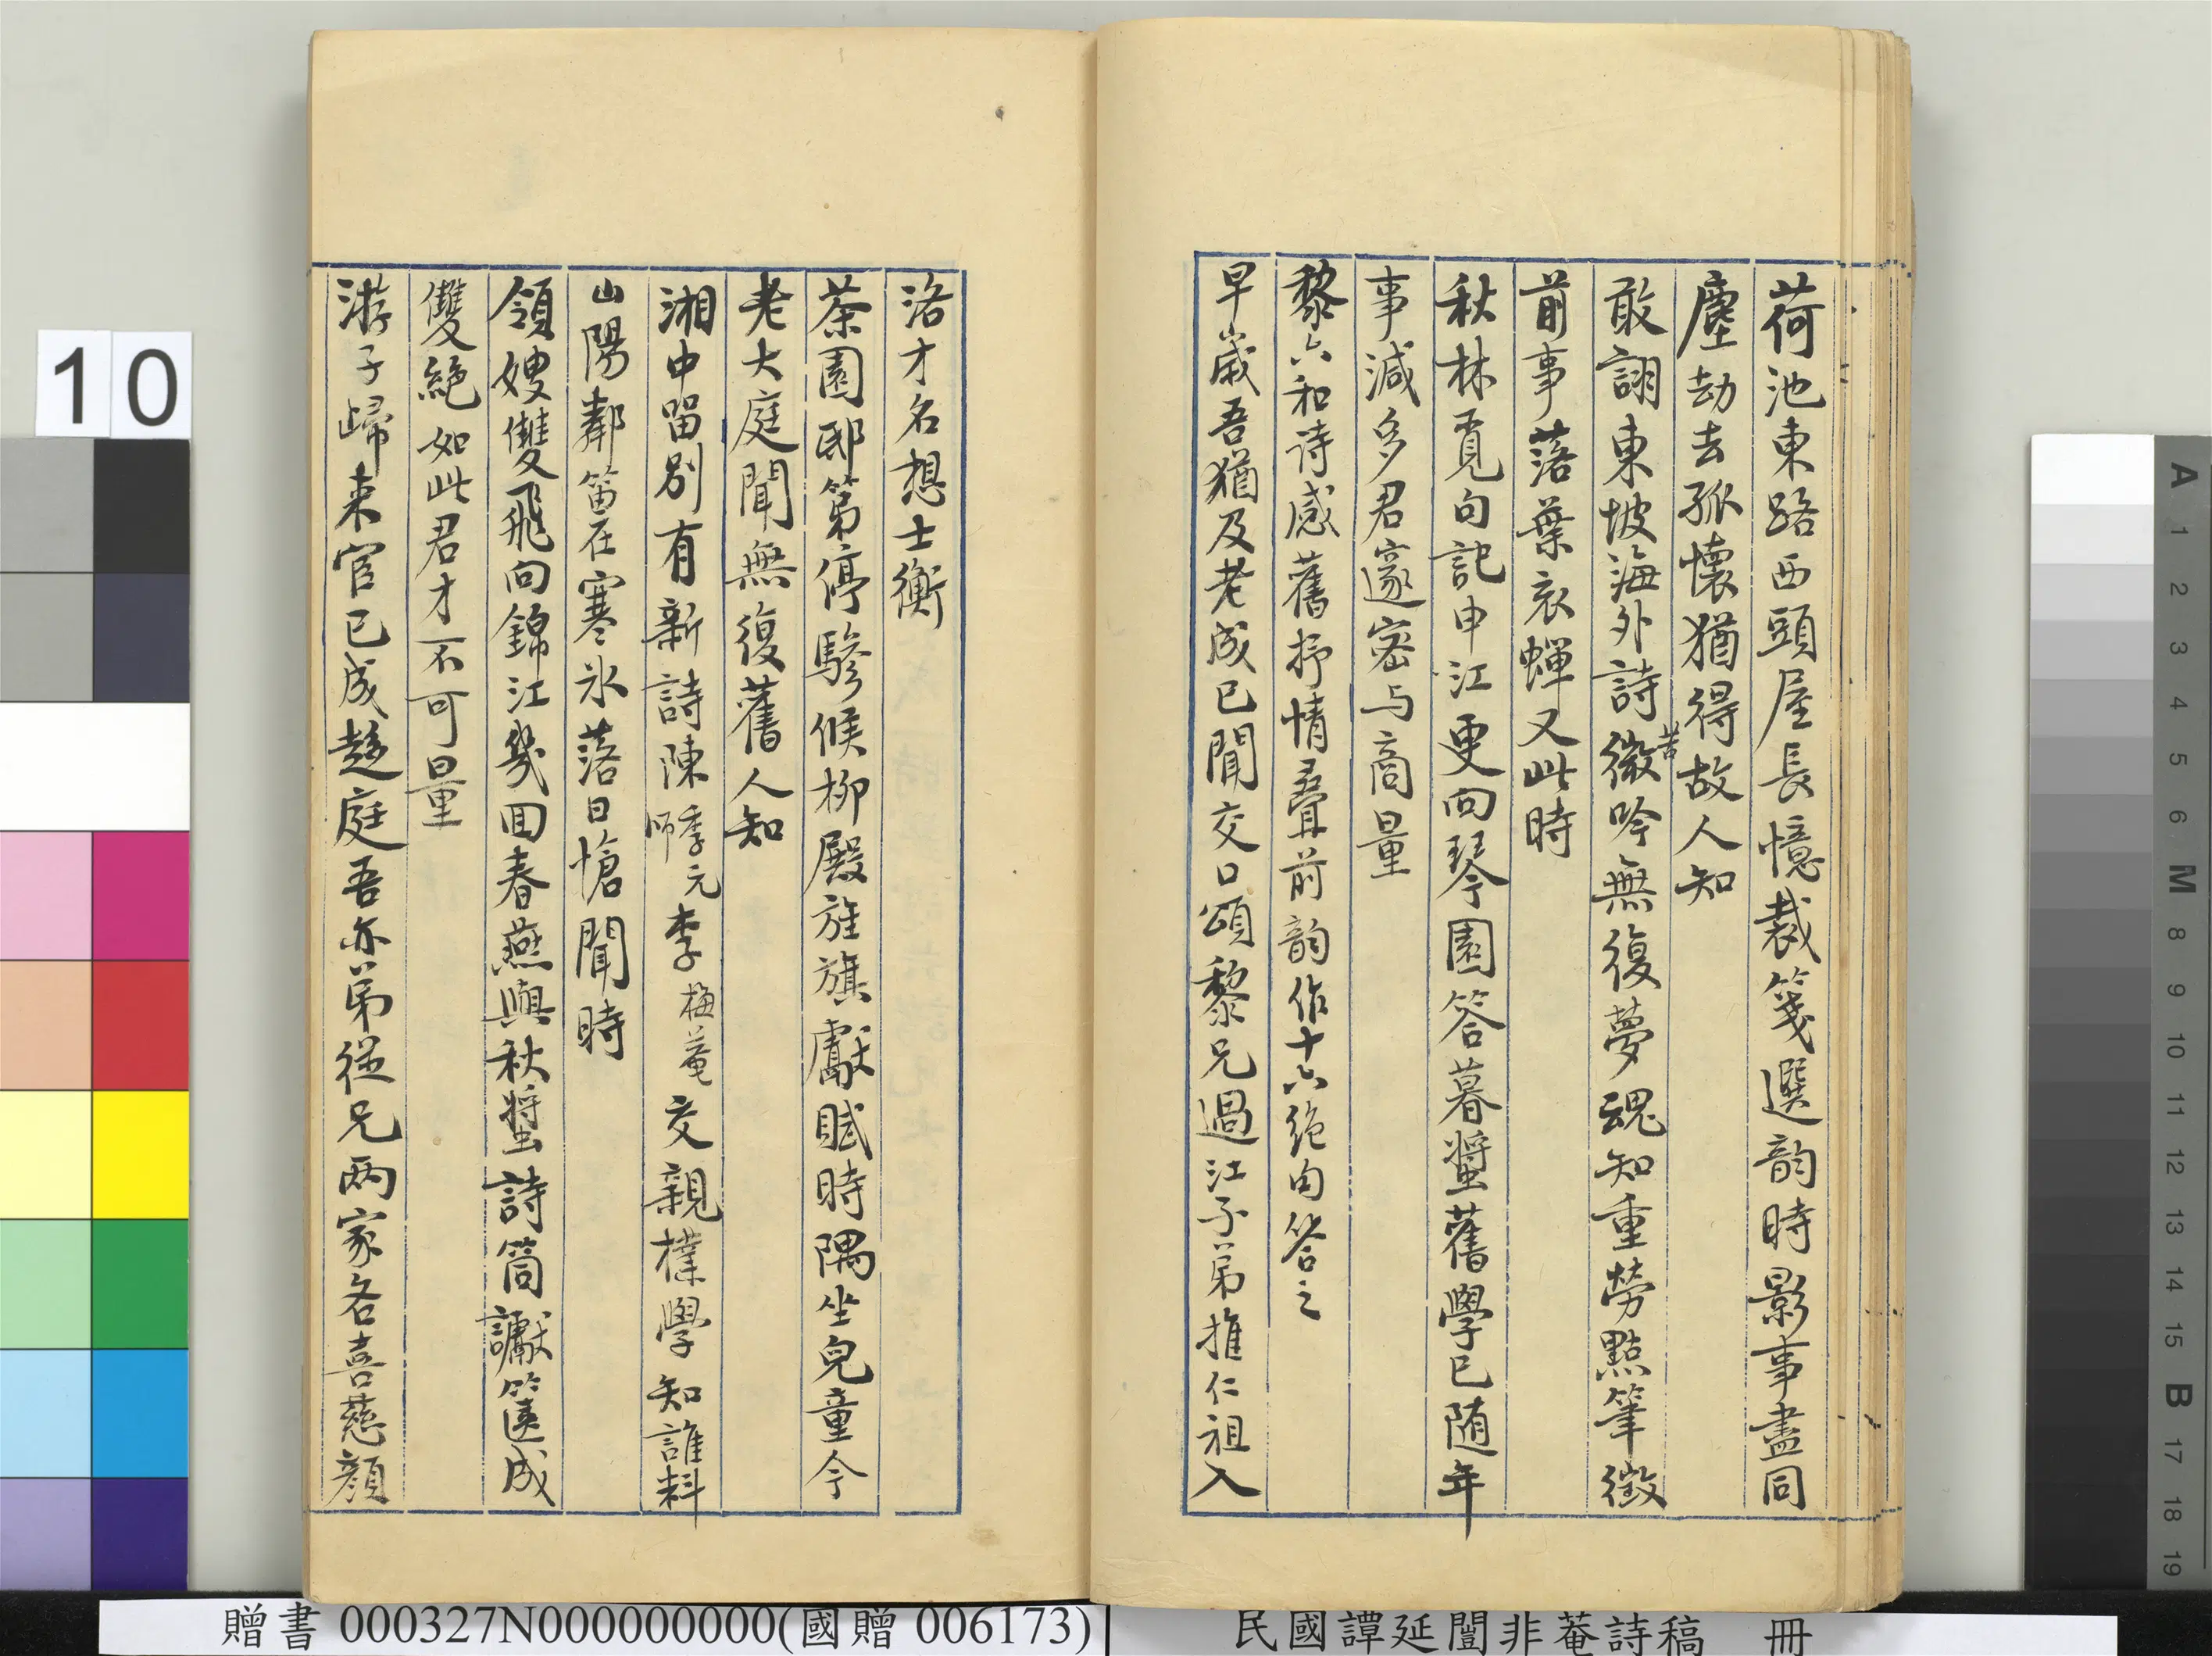 荷池東路西頭屋長憶裁箋選韵時影事盡同
塵劫去孤懷猶得故人知
敢詡東坡海外詩微吟無復夢魂知重勞點筆徵
苦
前事落葉衣蟬又此時
秋林覓句記申江更向琴園答暮螿舊學已随年
事減多君邃密与商量
黎六和诗感舊抒情疊前韵作十六绝句答之
早歲吾猶及老成已聞交口頌黎兄過江子弟推仁祖入
洛才名想士衡
茶園邸第停驂候柳殿旌旗獻賦時隅坐兒童今
老大庭聞無復舊人知
湘中留别有新詩陳季元師李梅菴交親樸學知誰料
山陽鄰笛在寒氷落日愴聞時
領嫂雙飛向錦江幾回春燕與秋螿詩筒讞篋成
雙絶如此君才不可量
游子歸来官已成趨庭吾亦弟從兄两家各喜慈顔
10
贈書 000327N000000000(國贈 006173)
民國譚延闓非菴詩稿 冊
A 1 2 3 4 5 6 M 8 9 10 11 12 13 14 15 B 17 18 19